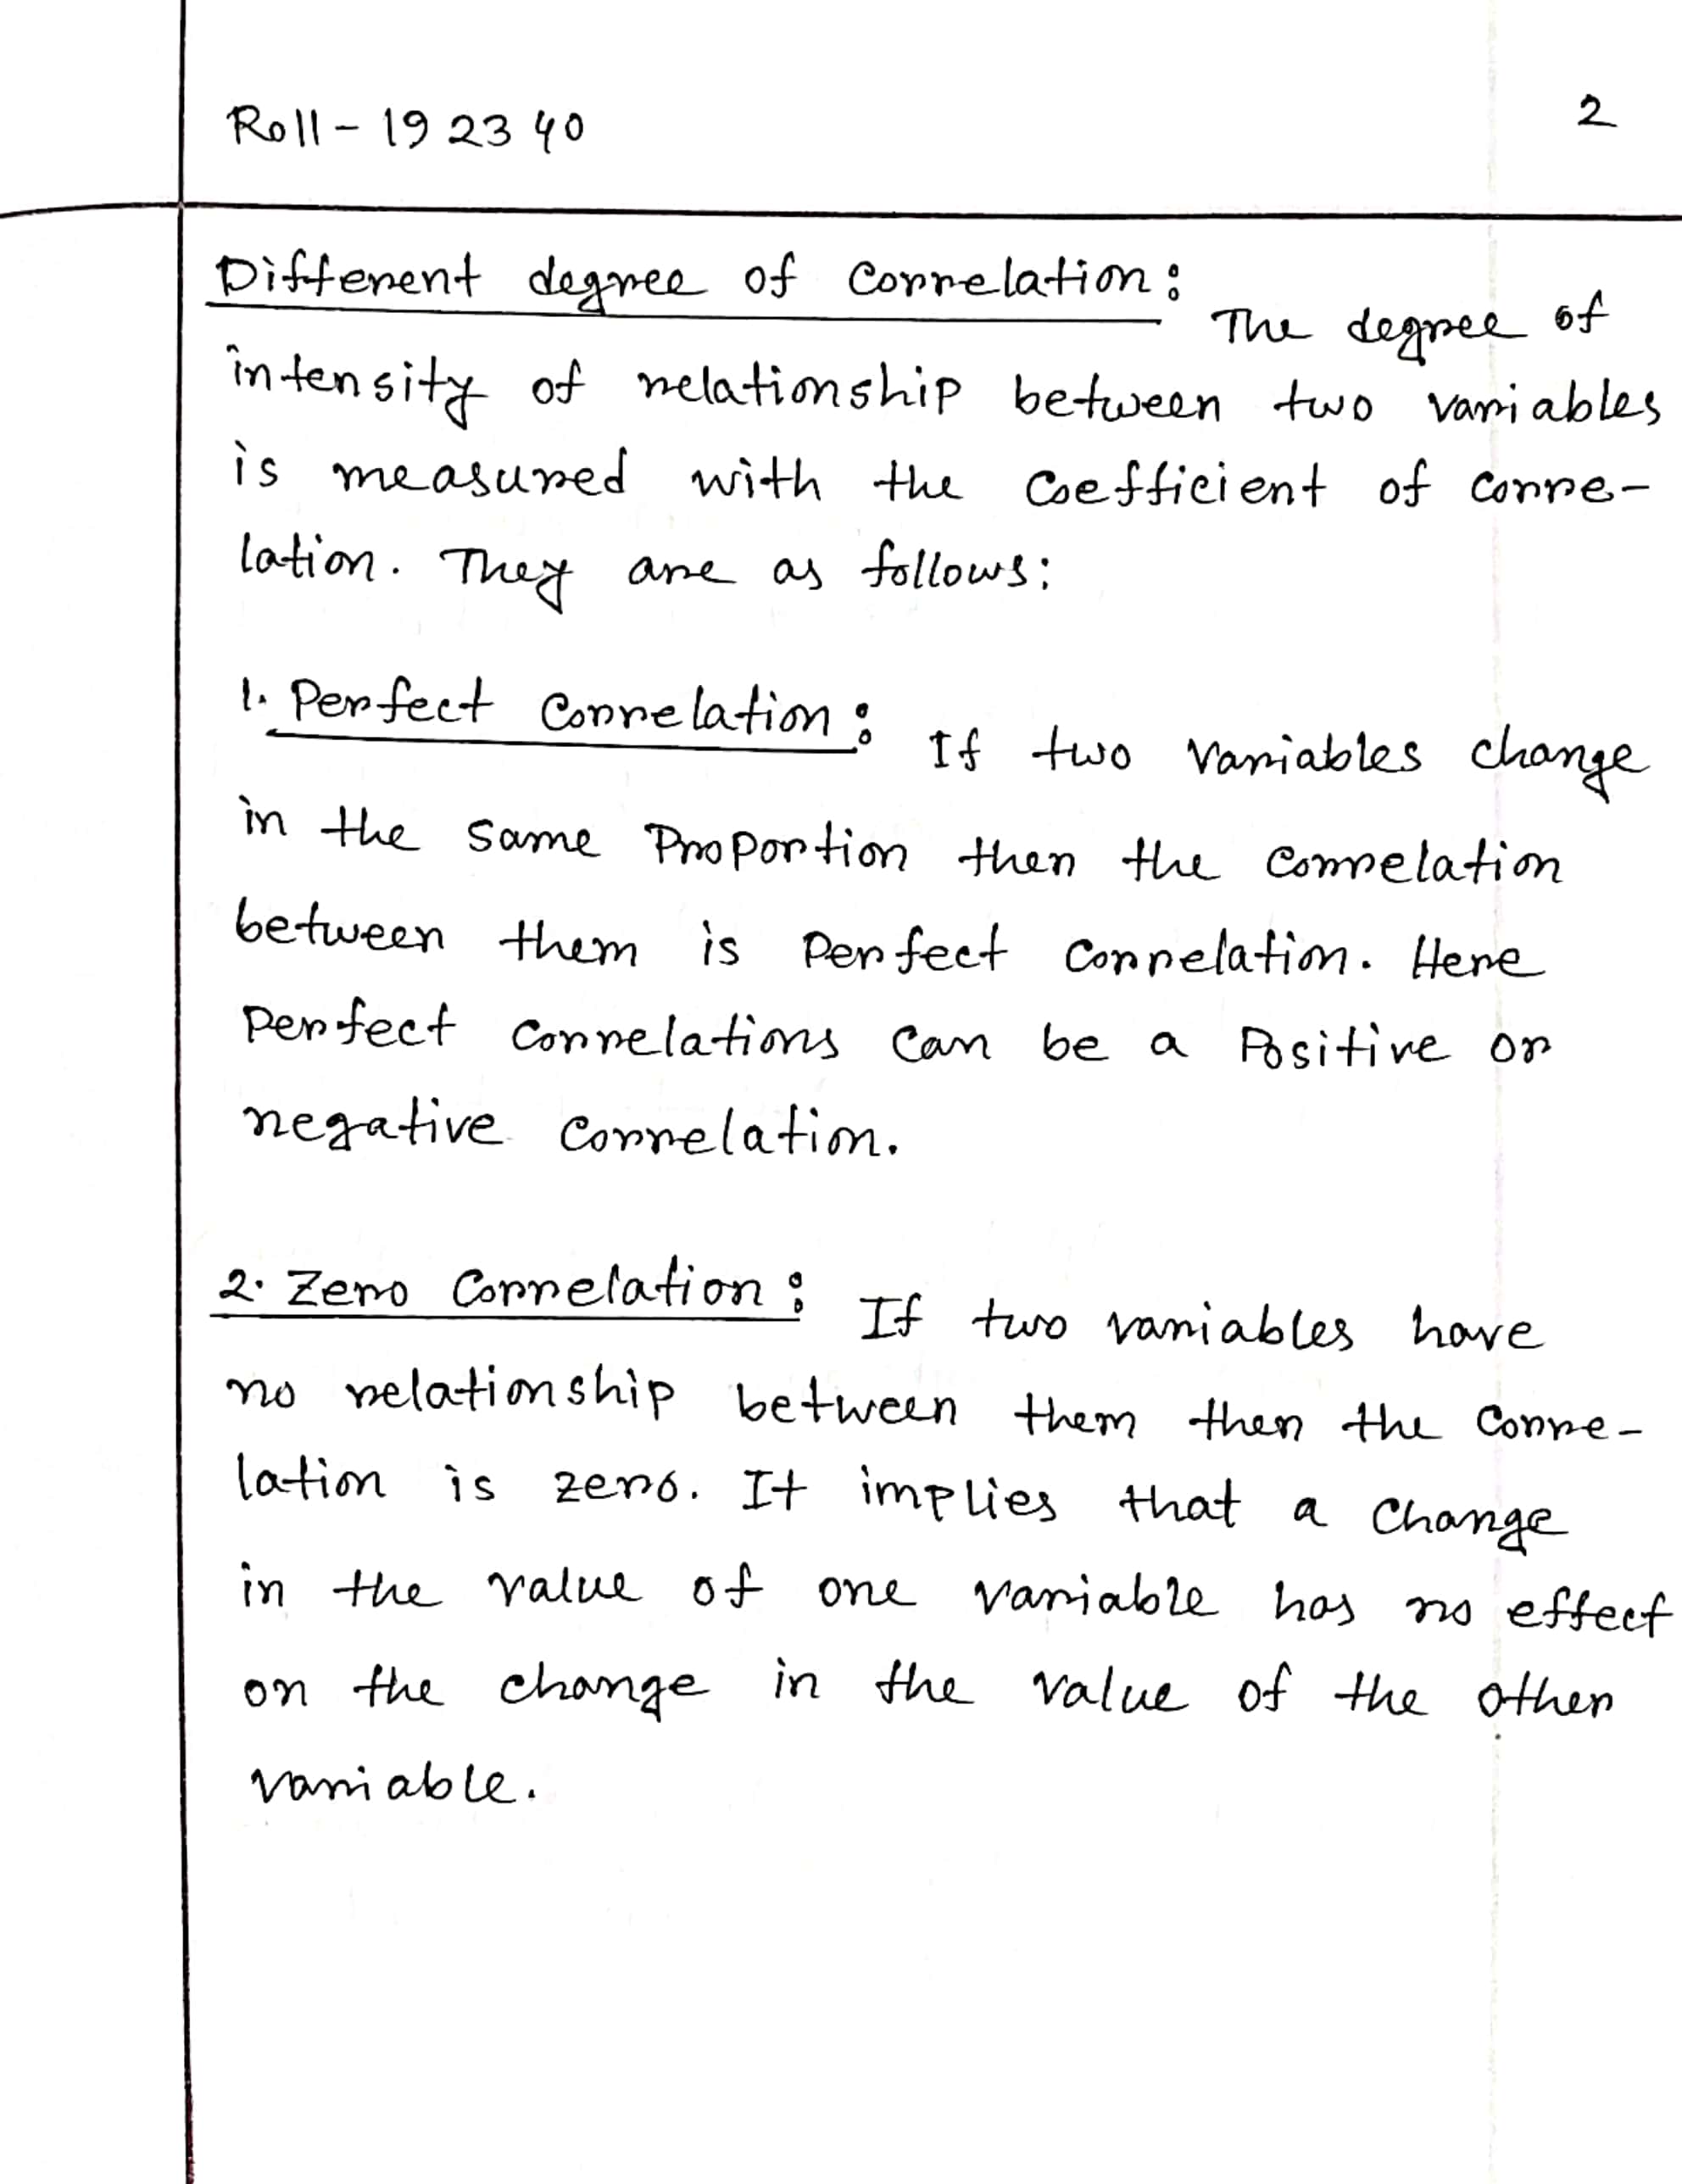 Roll - 192340
2
Different degree of Correlation: The degree of
intensity of relationship between two variables
is measured with the Coefficient of corre-
lation. They are as follows:
1. Perfect Correlation: If two Variables change
in the same Proportion then the correlation
between them is Perfect Correlation. Here
Perfect correlations can be a Positive or
negative correlation.
2. Zero Correlation: If two variables have
no relationship between them then the Corre-
lation is zero. It implies that a change
in the value of one variable has no effect
on the change in the value of the other
variable.